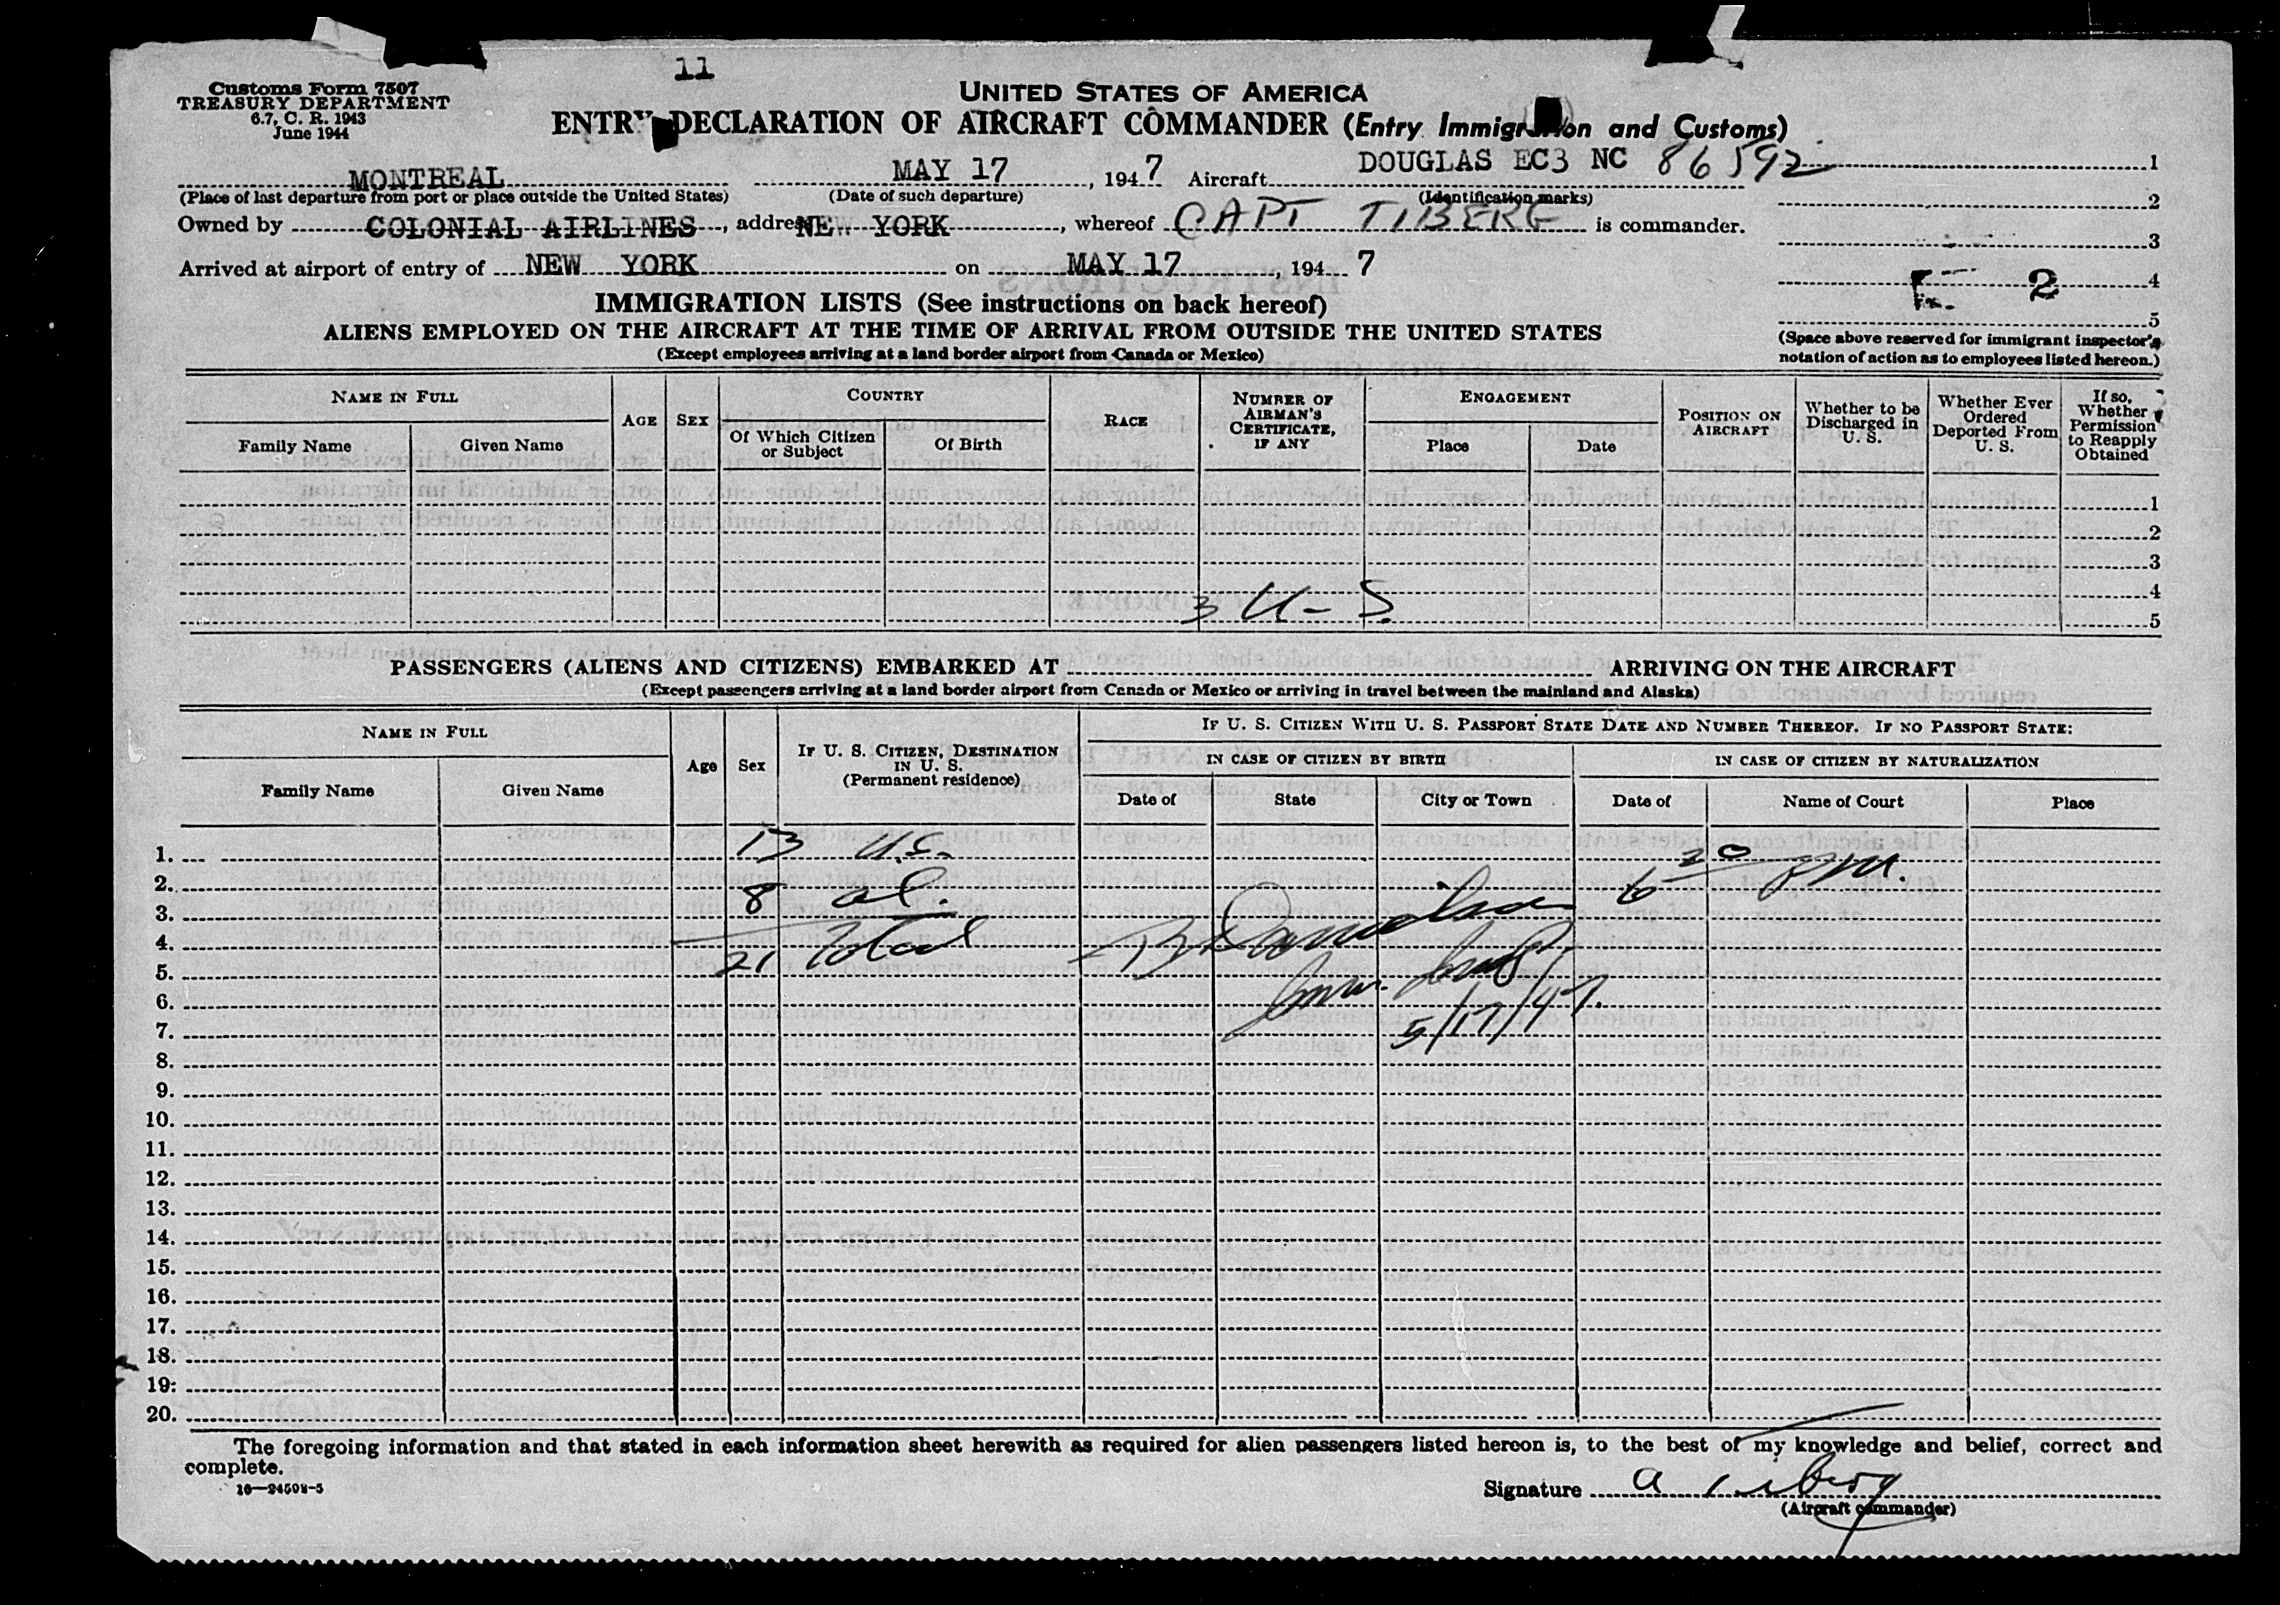 11
Customs Form 7507
TREASURY DEPARTMENT
6.7, C. R. 1943
June 1944
UNITED STATES OF AMERICA
ENTRY DECLARATION OF AIRCRAFT COMMANDER (Entry Immigration and Customs)
MONTREAL MAY 17, 1947 Aircraft DOUGLAS EC3 NC 86592
(Place of last departure from port or place outside the United States) (Date of such departure) (Identification marks)
Owned by COLONIAL AIRLINES, address NEW YORK, whereof CAPT TIBERG is commander.
Arrived at airport of entry of NEW YORK on MAY 17, 1947
1
2
3
4
2
5
(Space above reserved for immigrant inspector's notation of action as to employees listed hereon.)
IMMIGRATION LISTS (See instructions on back hereof)
ALIENS EMPLOYED ON THE AIRCRAFT AT THE TIME OF ARRIVAL FROM OUTSIDE THE UNITED STATES
(Except employees arriving at a land border airport from Canada or Mexico)
NAME IN FULL
Family Name Given Name
AGE SEX
COUNTRY
Of Which Citizen or Subject Of Birth
RACE
NUMBER OF AIRMAN'S CERTIFICATE, IF ANY
ENGAGEMENT
Place Date
POSITION ON AIRCRAFT
Whether to be Discharged in U. S.
Whether Ever Ordered Deported From U. S.
If so, Whether Permission to Reapply Obtained
1
2
3
4
3 U-S.
5
PASSENGERS (ALIENS AND CITIZENS) EMBARKED AT ARRIVING ON THE AIRCRAFT
(Except passengers arriving at a land border airport from Canada or Mexico or arriving in travel between the mainland and Alaska)
NAME IN FULL
Family Name Given Name
Age Sex
IF U. S. CITIZEN, DESTINATION IN U. S.
(Permanent residence)
IF U. S. CITIZEN WITH U. S. PASSPORT STATE DATE AND NUMBER THEREOF. IF NO PASSPORT STATE:
IN CASE OF CITIZEN BY BIRTH IN CASE OF CITIZEN BY NATURALIZATION
Date of State City or Town Date of Name of Court Place
1. 13 U.S.
2. 8 al. 6 20 PM.
3.
4. 21 Total
5.
6.
7. 5/17/47.
8.
9.
10.
11.
12.
13.
14.
15.
16.
17.
18.
19.
20.
The foregoing information and that stated in each information sheet herewith as required for alien passengers listed hereon is, to the best of my knowledge and belief, correct and
complete.
16—24598-5
Signature A Tiberg
(Aircraft commander)